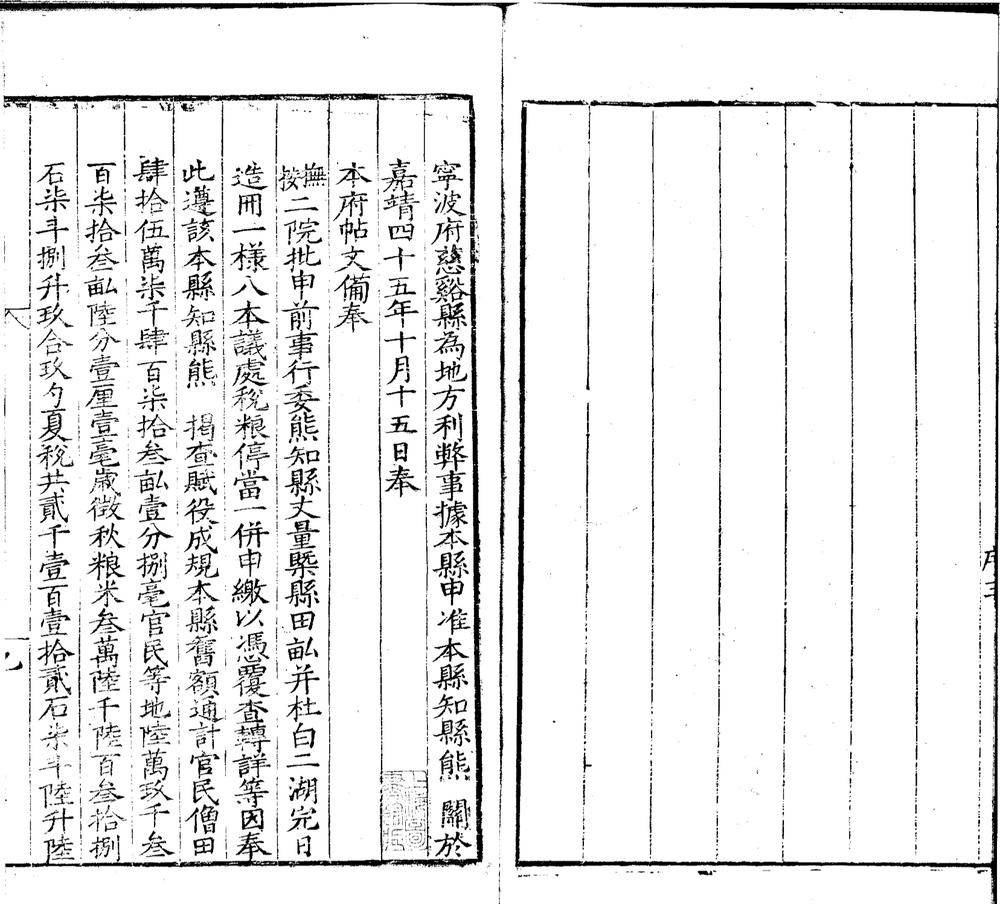 寧波府慈谿縣為地方利弊事據本縣申准本縣知縣熊　關於
嘉靖四十五年十月十五日奉
本府帖文備奉
撫按二院批申前事行委熊知縣丈量槩縣田畆并杜白二湖完日
造冊一樣八本議處稅粮停當一併申繳以憑覆查轉詳等因奉
此遵該本縣知縣熊　揭查賦役成規本縣舊額通計官民僧田
肆拾伍萬柒千肆百柒拾叁畆壹分捌毫官民等地陸萬玖千叁
百柒拾叁畆陸分壹厘壹毫歲徵秋粮米叁萬陸千陸百叁拾捌
石柒斗捌升玖合玖勺夏稅共貳千壹百壹拾貳石柒斗陸升陸